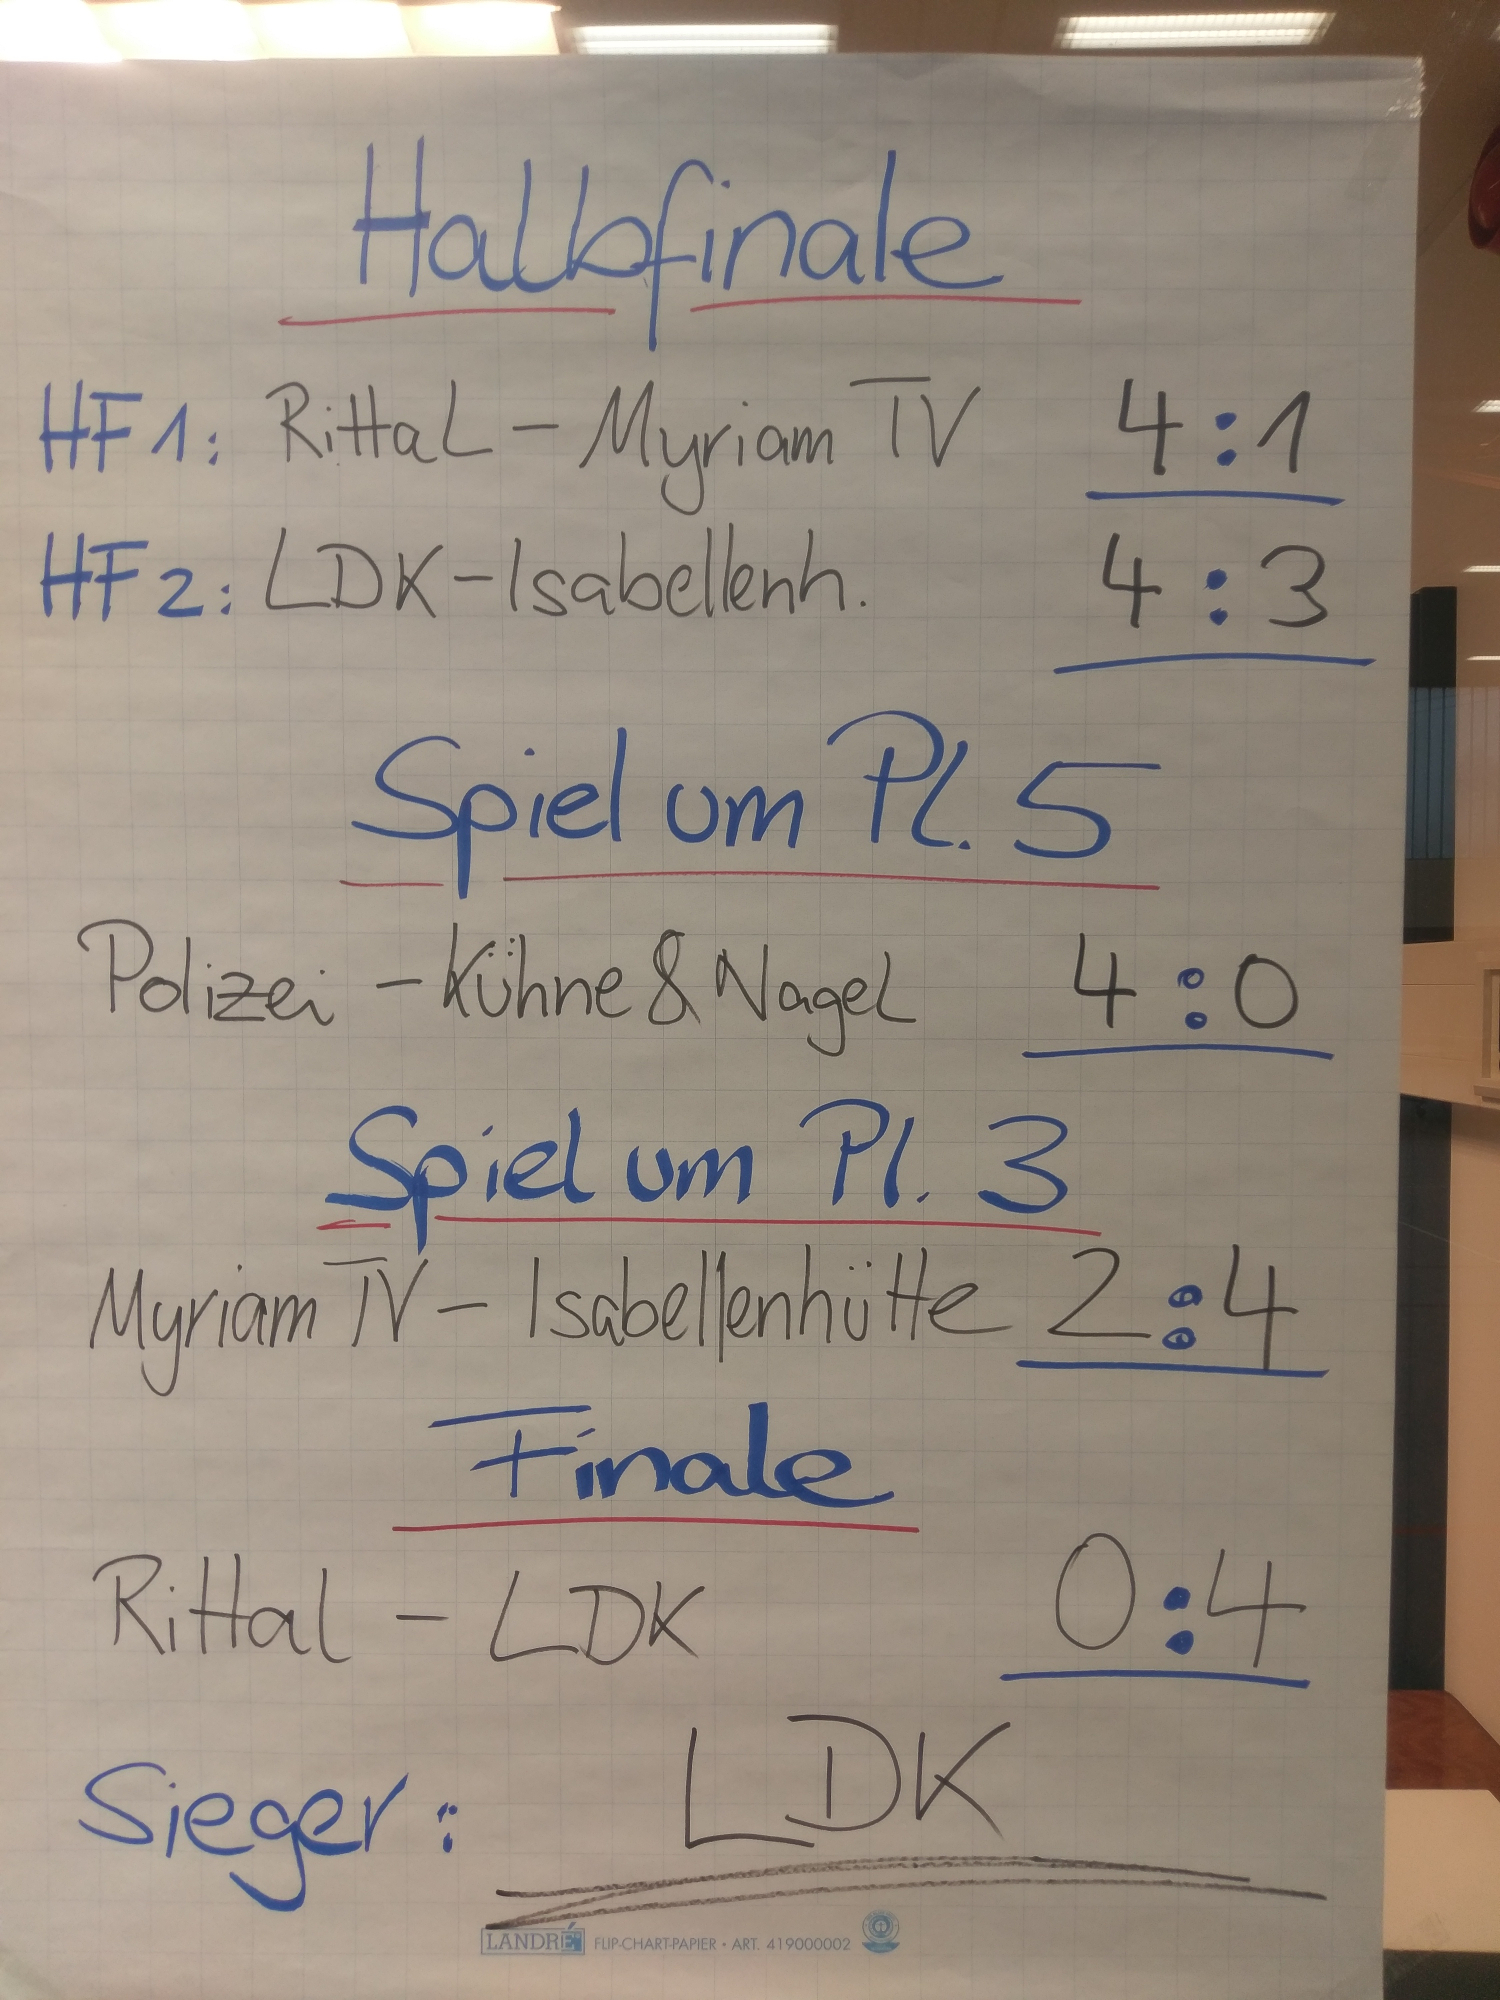 Halbfinale
HF1: Rittal - Myriam TV 4:1
HF2: LDK - Isabellenh. 4:3
Spiel um Pl. 5
Polizei - Kühne & Nagel 4:0
Spiel um Pl. 3
Myriam TV - Isabellenhütte 2:4
Finale
Rittal - LDK 0:4
Sieger: LDK
LANDRÉ FLIP-CHART-PAPIER • ART. 419000002